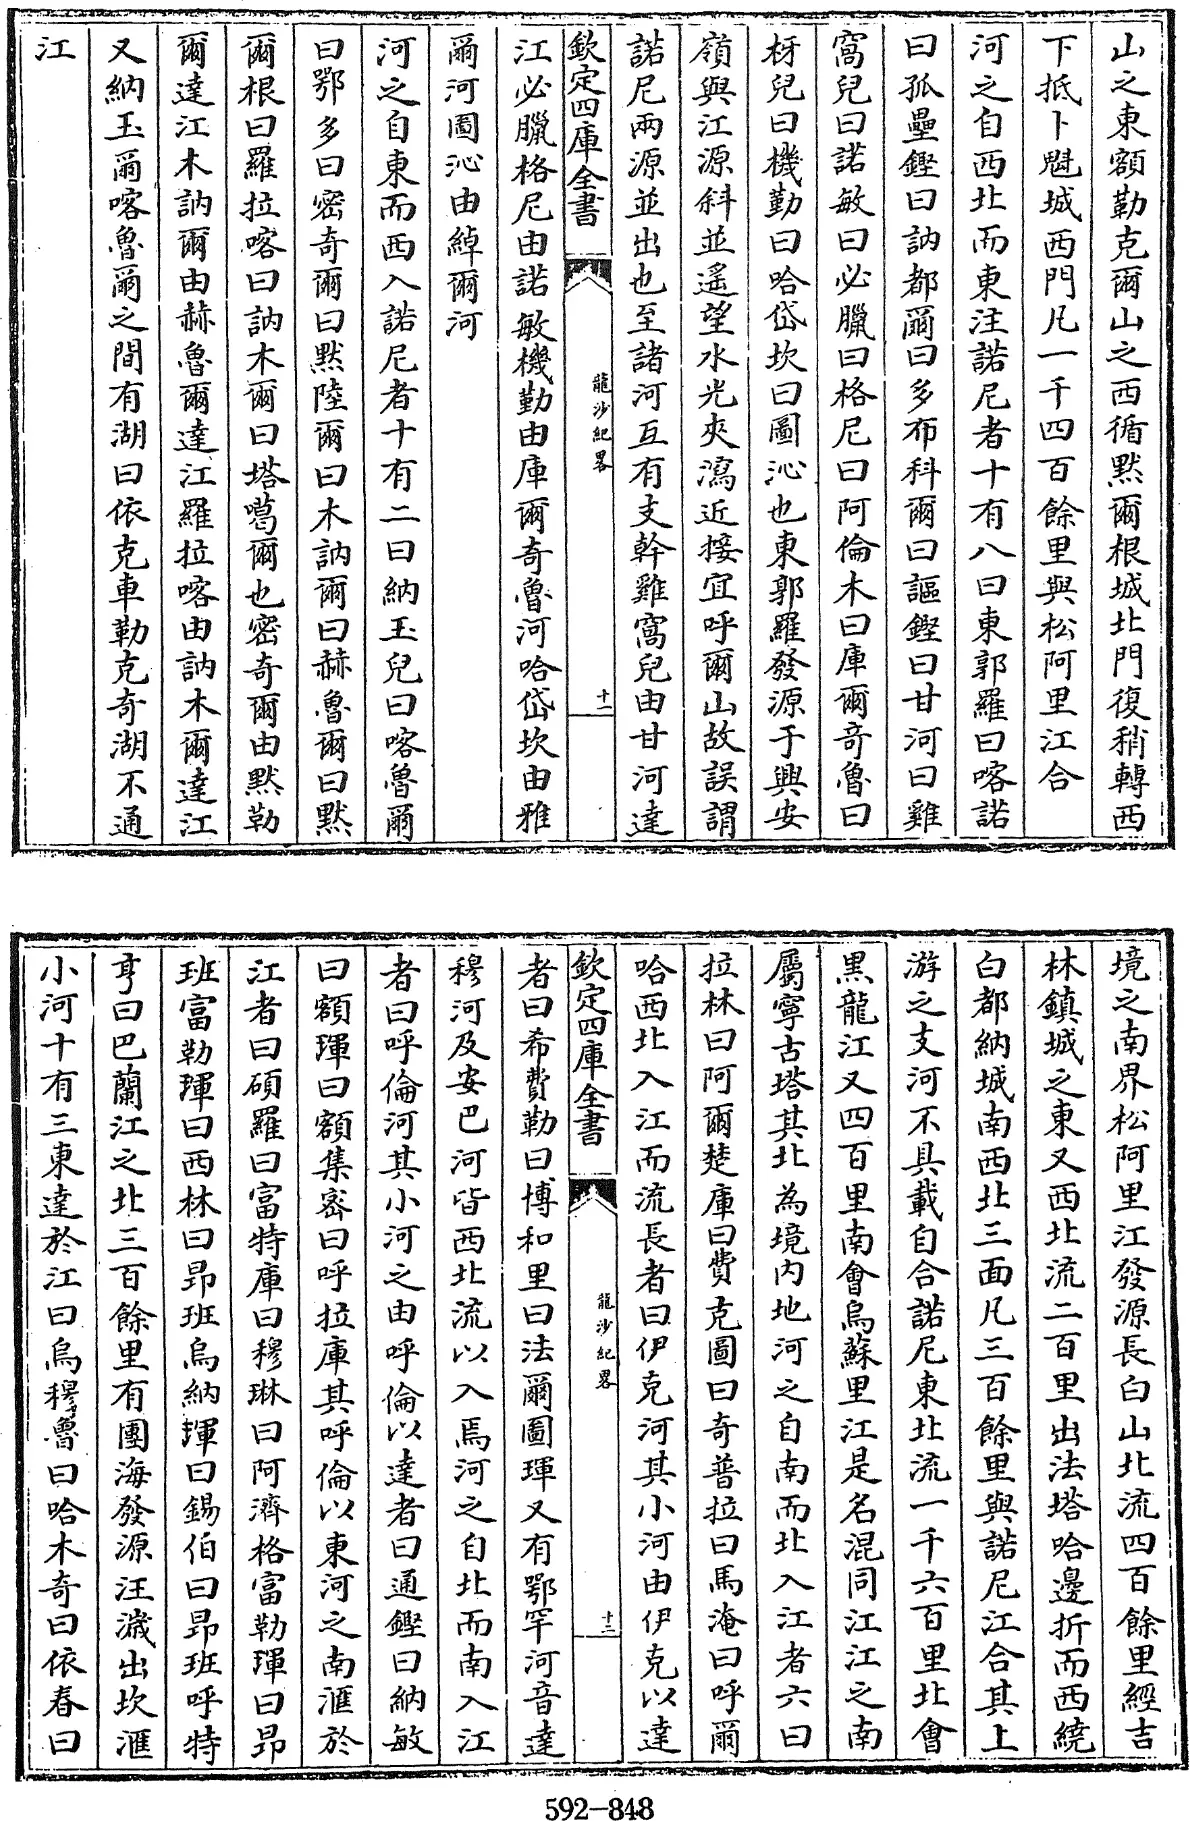 山之東額勒克爾山之西循默爾根城北門復稍轉西
下抵卜魁城西門凡一千四百餘里與松阿里江合
河之自西北而東注諾尼者十有八曰東郭羅曰喀諾
曰孤壘鏗曰訥都爾曰多布科爾曰謳鏗曰甘河曰雞
窩兒曰諾敏曰必臘曰格尼曰阿倫木曰庫爾奇魯曰
枒兒曰機勤曰哈岱坎曰圖沁也東郭羅發源于興安
嶺與江源斜並遙望水光夾瀉近接宜呼爾山故誤謂
諾尼兩源並出也至諸河互有支幹雞窩兒由甘河達
欽定四庫全書
龍沙紀畧
十一
江必臘格尼由諾敏機勤由庫爾奇魯河哈岱坎由雅
爾河圖沁由綽爾河
河之自東而西入諾尼者十有二曰納玉兒曰喀魯爾
曰鄂多曰密奇爾曰默陸爾曰木訥爾曰赫魯爾曰默
爾根曰羅拉喀曰訥木爾曰塔噶爾也密奇爾由默勒
爾達江木訥爾由赫魯爾達江羅拉喀由訥木爾達江
又納玉爾喀魯爾之間有湖曰依克車勒克奇湖不通
江
境之南界松阿里江發源長白山北流四百餘里經吉
林鎮城之東又西北流二百里出法塔哈邊折而西繞
白都納城南西北三面凡三百餘里與諾尼江合其上
游之支河不具載自合諾尼東北流一千六百里北會
黑龍江又四百里南會烏蘇里江是名混同江江之南
屬寧古塔其北為境內地河之自南而北入江者六曰
拉林曰阿爾楚庫曰費克圖曰奇普拉曰馬淹曰呼爾
哈西北入江而流長者曰伊克河其小河由伊克以達
欽定四庫全書
龍沙紀畧
十二
者曰希費勒曰博和里曰法爾圖琿又有鄂罕河音達
穆河及安巴河皆西北流以入焉河之自北而南入江
者曰呼倫河其小河之由呼倫以達者曰通鏗曰納敏
曰額琿曰額集密曰呼拉庫其呼倫以東河之南滙於
江者曰碩羅曰富特庫曰穆琳曰阿濟格富勒琿曰昻
班富勒琿曰西林曰昻班烏納琿曰錫伯曰昻班呼特
亨曰巴蘭江之北三百餘里有團海發源汪濊出坎滙
小河十有三東達於江曰烏穆魯曰哈木奇曰依春曰
592-848